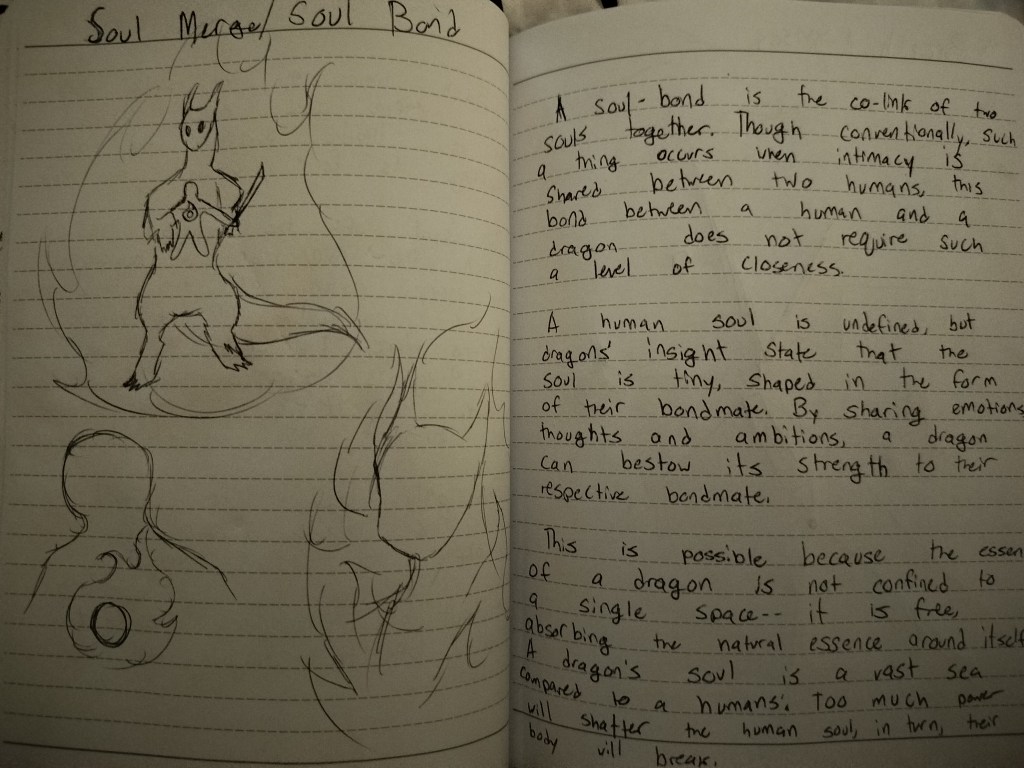 Soul Merge/ Soul Bond
A soul-bond is the co-link of two
souls together. Though conventionally, such
a thing occurs when intimacy is
shared between two humans, this
bond between a human and a
dragon does not require such
a level of closeness.
A human soul is undefined, but
dragons' insight state that the
soul is tiny, shaped in the form
of their bondmate. By sharing emotions
thoughts and ambitions, a dragon
can bestow its strength to their
respective bondmate.
This is possible because the essen
of a dragon is not confined to
a single space-- it is free,
absorbing the natural essence around itself
A dragon's soul is a vast sea
compared to a humans'. Too much power
will shatter the human soul, in turn, their
body will break.